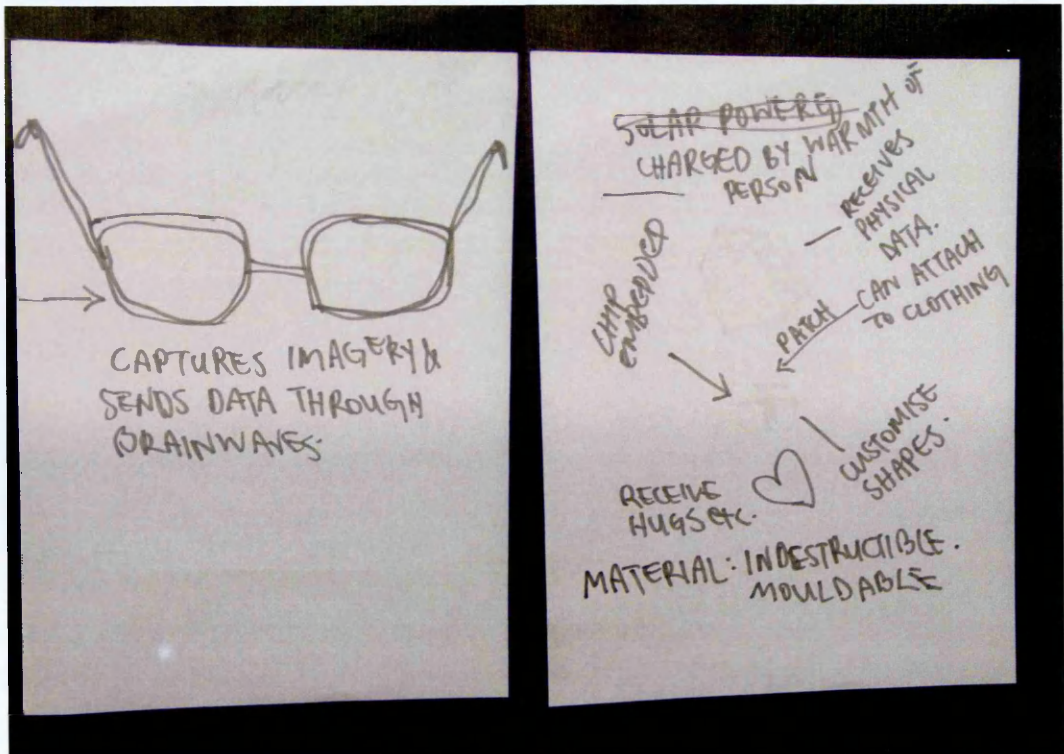 CAPTURES IMAGERY &
SENDS DATA THROUGH
BRAINWAVES.
SOLAR POWERED
CHARGED BY WARMTH OF
PERSON
RECEIVES
PHYSICAL
DATA.
CHIP
EMBEDDED
PATCH
CAN ATTACH
TO CLOTHING
CUSTOMISE
SHAPES.
RECEIVE
HUGS etc.
MATERIAL: INDESTRUCTIBLE.
MOULDABLE